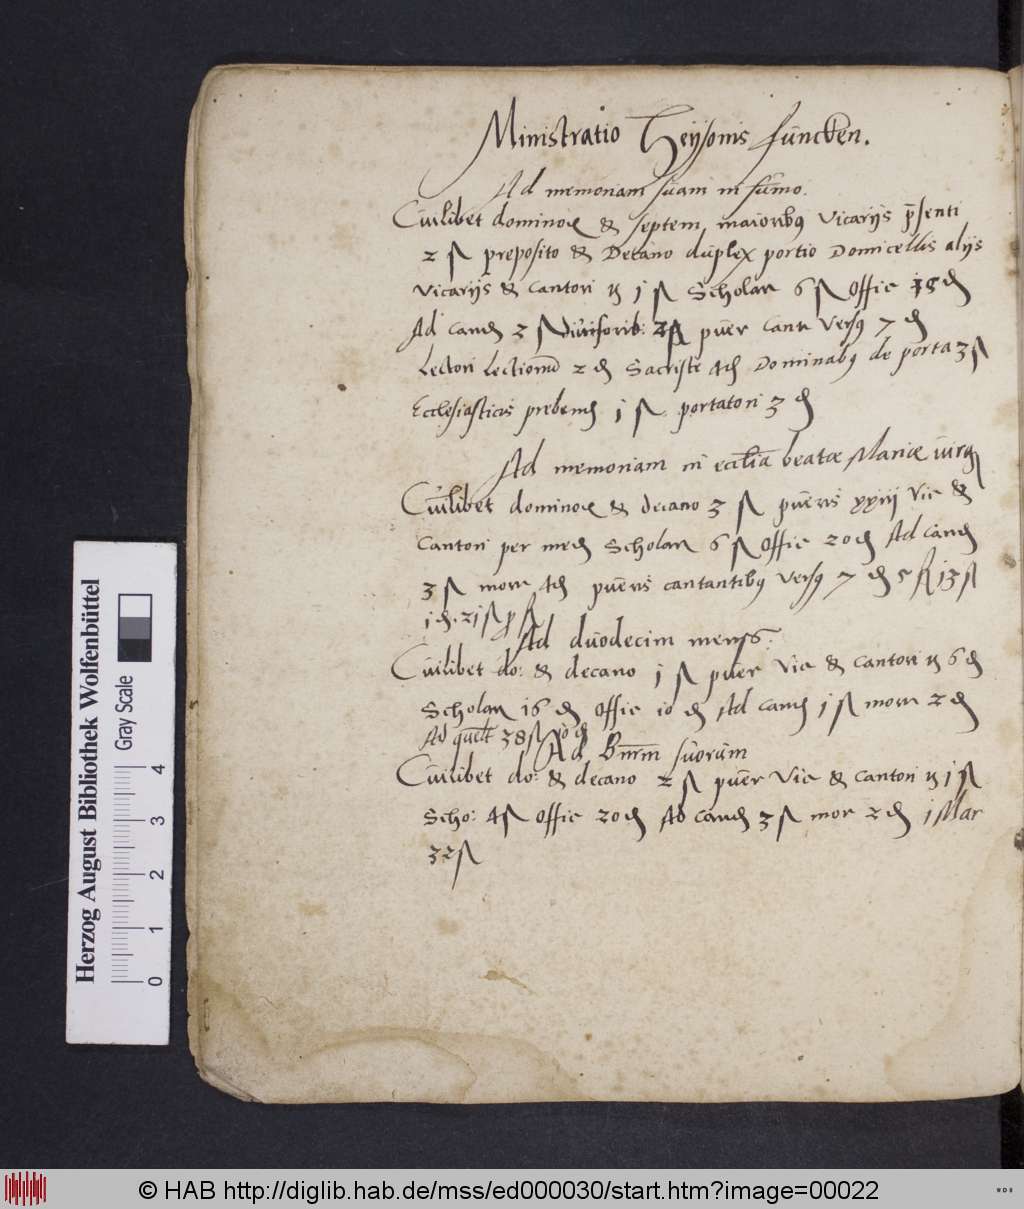 Ministratio Heysonis Funcken.
Ad memoriam suam in sum̄o.
Cuilibet dominoꝝ & septem maioribꝰ Vicarijs p̄senti
2 ß preposito & Decano duplex portio Domicellis alijs
vicarijs & Cantori 1 ß Scholar 6 ß Offic 18 ₰
Ad Cand 2 ß puer Cant Versꝰ 7 ₰
Lectori Lectionū 2 ₰ Sacriste 4 ₰ Dominabꝰ de porta 3 ß
Ecclesiasticis prebend 1 ß portatori 3 ₰
Ad memoriam in eccl̄ia beatæ Mariæ virg
Cuilibet dominoꝝ & decano 3 ß pueris xxiiij Vic &
Cantori per med Scholar 6 ß Offic 20 ₰ Ad Cand
3 ß 4 ₰ pueris cantantibꝰ Versꝰ 7 ₰ 13 ß
Ad duodecim mens
Cuilibet do: & decano 1 ß puer Vic & Cantori 6 ₰
Scholar 16 ₰ Offic 10 ₰ Ad Cand 1 ß 2 ₰
Ad quelt 38 ß 10 ₰
Ad suorum
Cuilibet do: & decano 2 ß puer Vic & Cantori 1 ß
Scho: 4 ß Offic 20 ₰ Ad Cand 3 ß mor 2 ₰ 1 Mar
32 ß
Herzog August Bibliothek Wolfenbüttel
Gray Scale
0 1 2 3 4
© HAB http://diglib.hab.de/mss/ed000030/start.htm?image=00022